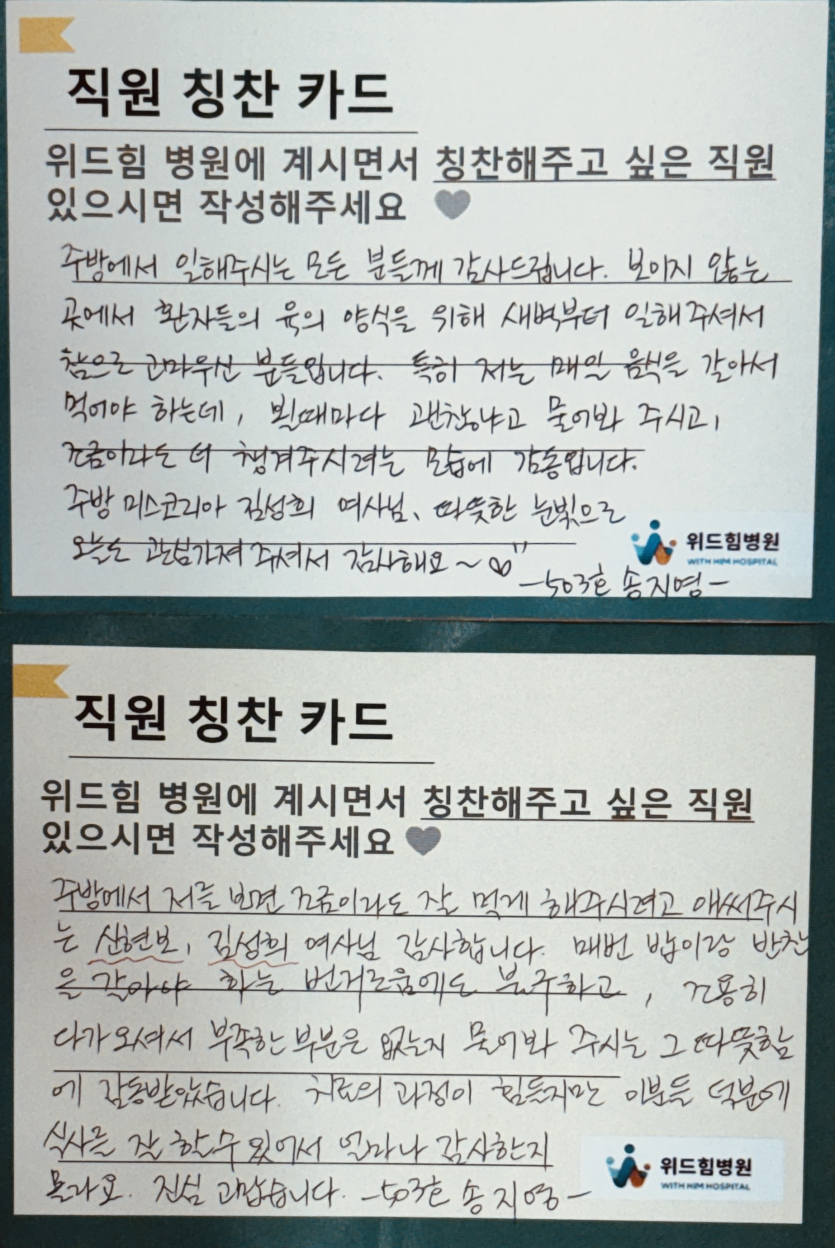 직원 칭찬 카드
위드힘 병원에 계시면서 칭찬해주고 싶은 직원
있으시면 작성해주세요
주방에서 일해주시는 모든 분들께 감사드립니다. 보이지 않는
곳에서 환자들의 육의 양식을 위해 새벽부터 일해주셔서
참으로 고마우신 분들입니다. 특히 저는 매일 음식을 갈아서
먹어야 하는데, 뵐때마다 괜찮냐고 물어봐 주시고,
조금이라도 더 챙겨주시려는 모습에 감동입니다.
주방 미스코리아 김성희 여사님, 따뜻한 눈빛으로
오늘도 관심가져 주셔서 감사해요~
-503호 송지영-
위드힘병원
WITH HIM HOSPITAL
직원 칭찬 카드
위드힘 병원에 계시면서 칭찬해주고 싶은 직원
있으시면 작성해주세요
주방에서 저를 보면 조금이라도 잘 먹게 해주시려고 애써주시
는 신현보, 김성희 여사님 감사합니다. 매번 밥이랑 반찬
을 갈아야 하는 번거로움에도 분주하고, 조용히
다가오셔서 부족한 부분은 없는지 물어봐 주시는 그 따뜻함
에 감동받았습니다. 치료의 과정이 힘들지만 이분들 덕분에
식사를 잘 할수 있어서 얼마나 감사한지
몰라요. 진심 고맙습니다. -503호 송지영-
위드힘병원
WITH HIM HOSPITAL